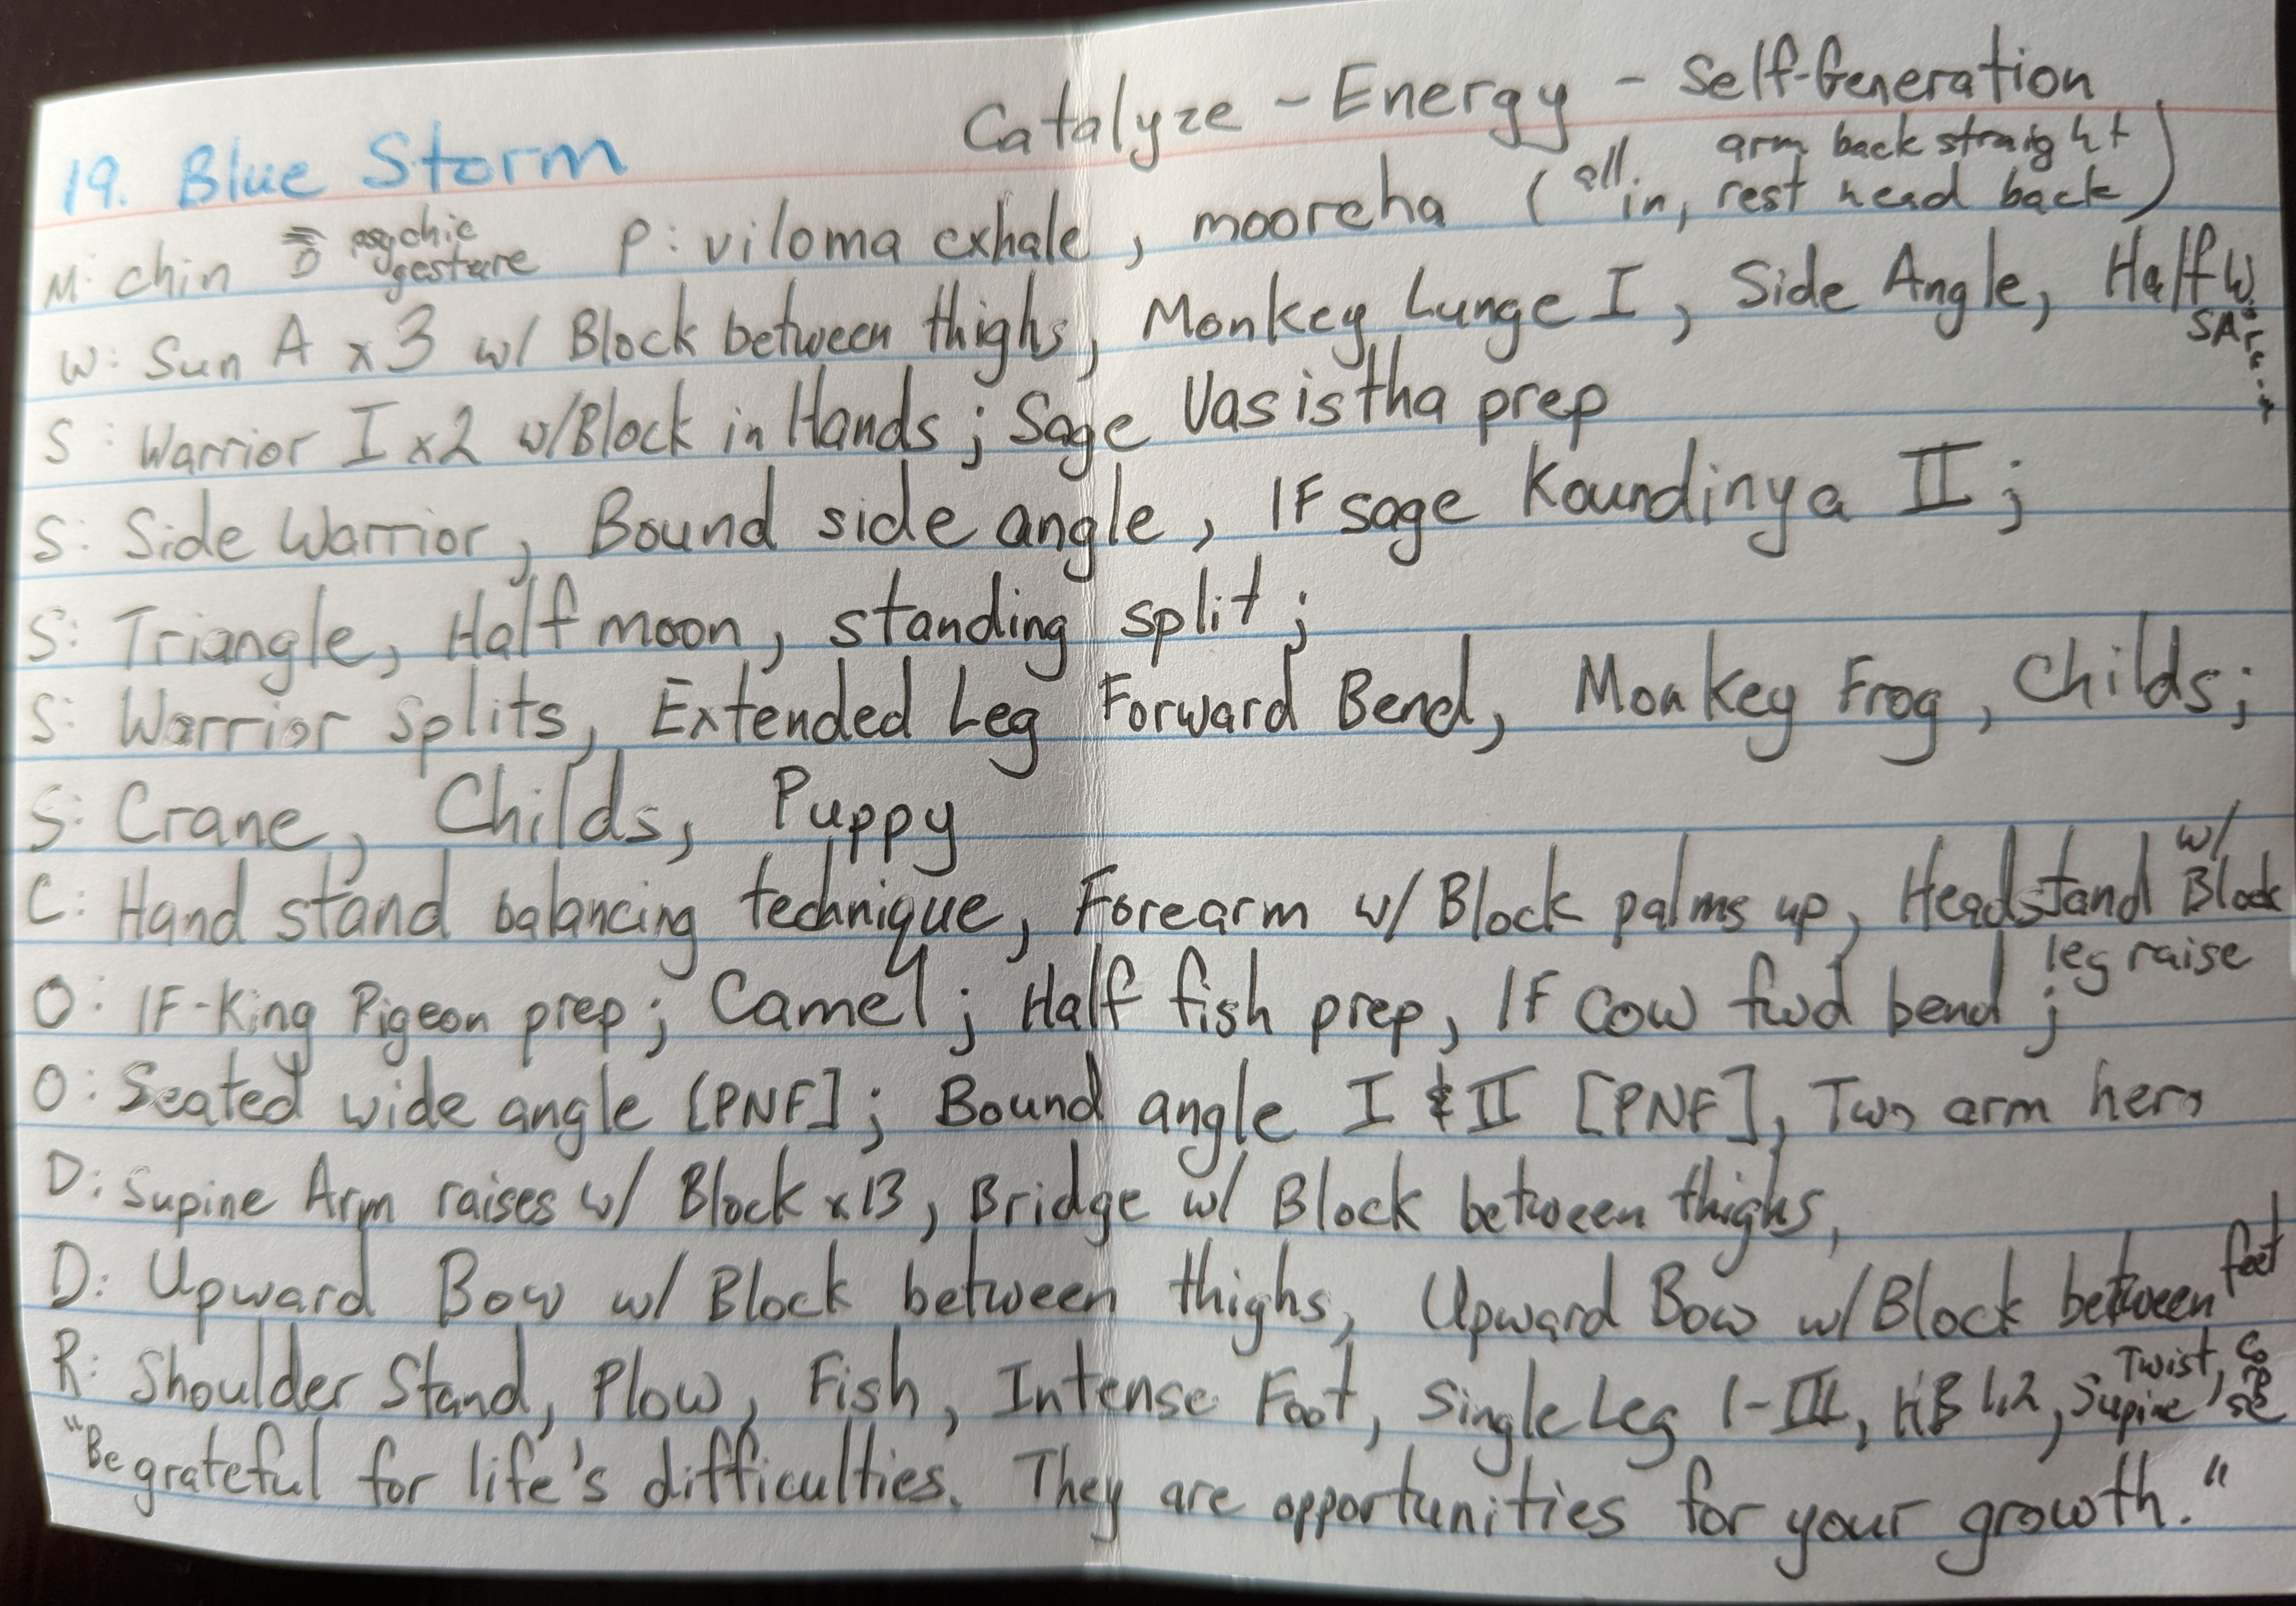 Catalyze - Energy - Self-Generation
19. Blue Storm
M: chin psychic gesture P: viloma exhale, moorcha (all in, arm back straight rest head back)
W: Sun A x 3 w/ Block between thighs, Monkey Lunge I, Side Angle, Half W. SA
S: Warrior I x2 w/Block in Hands; Sage Vasistha prep
S: Side Warrior, Bound side angle, IF sage Koundinya II;
S: Triangle, Half moon, standing split;
S: Warrior splits, Extended Leg Forward Bend, Monkey Frog, Childs;
S: Crane, Childs, Puppy
C: Hand stand balancing technique, Forearm w/ Block palms up, Headstand w/ Block leg raise
O: IF-King Pigeon prep; Camel; Half fish prep, IF cow fwd bend;
O: Seated wide angle [PNF]; Bound angle I & II [PNF], Two arm hero
D: Supine Arm raises w/ Block x 13, Bridge w/ Block between thighs,
D: Upward Bow w/ Block between thighs, Upward Bow w/ Block between feet
R: Shoulder Stand, Plow, Fish, Intense Foot, Single Leg I-III, HB 1,2, Supine Twist, Corpse
"Be grateful for life's difficulties. They are opportunities for your growth."